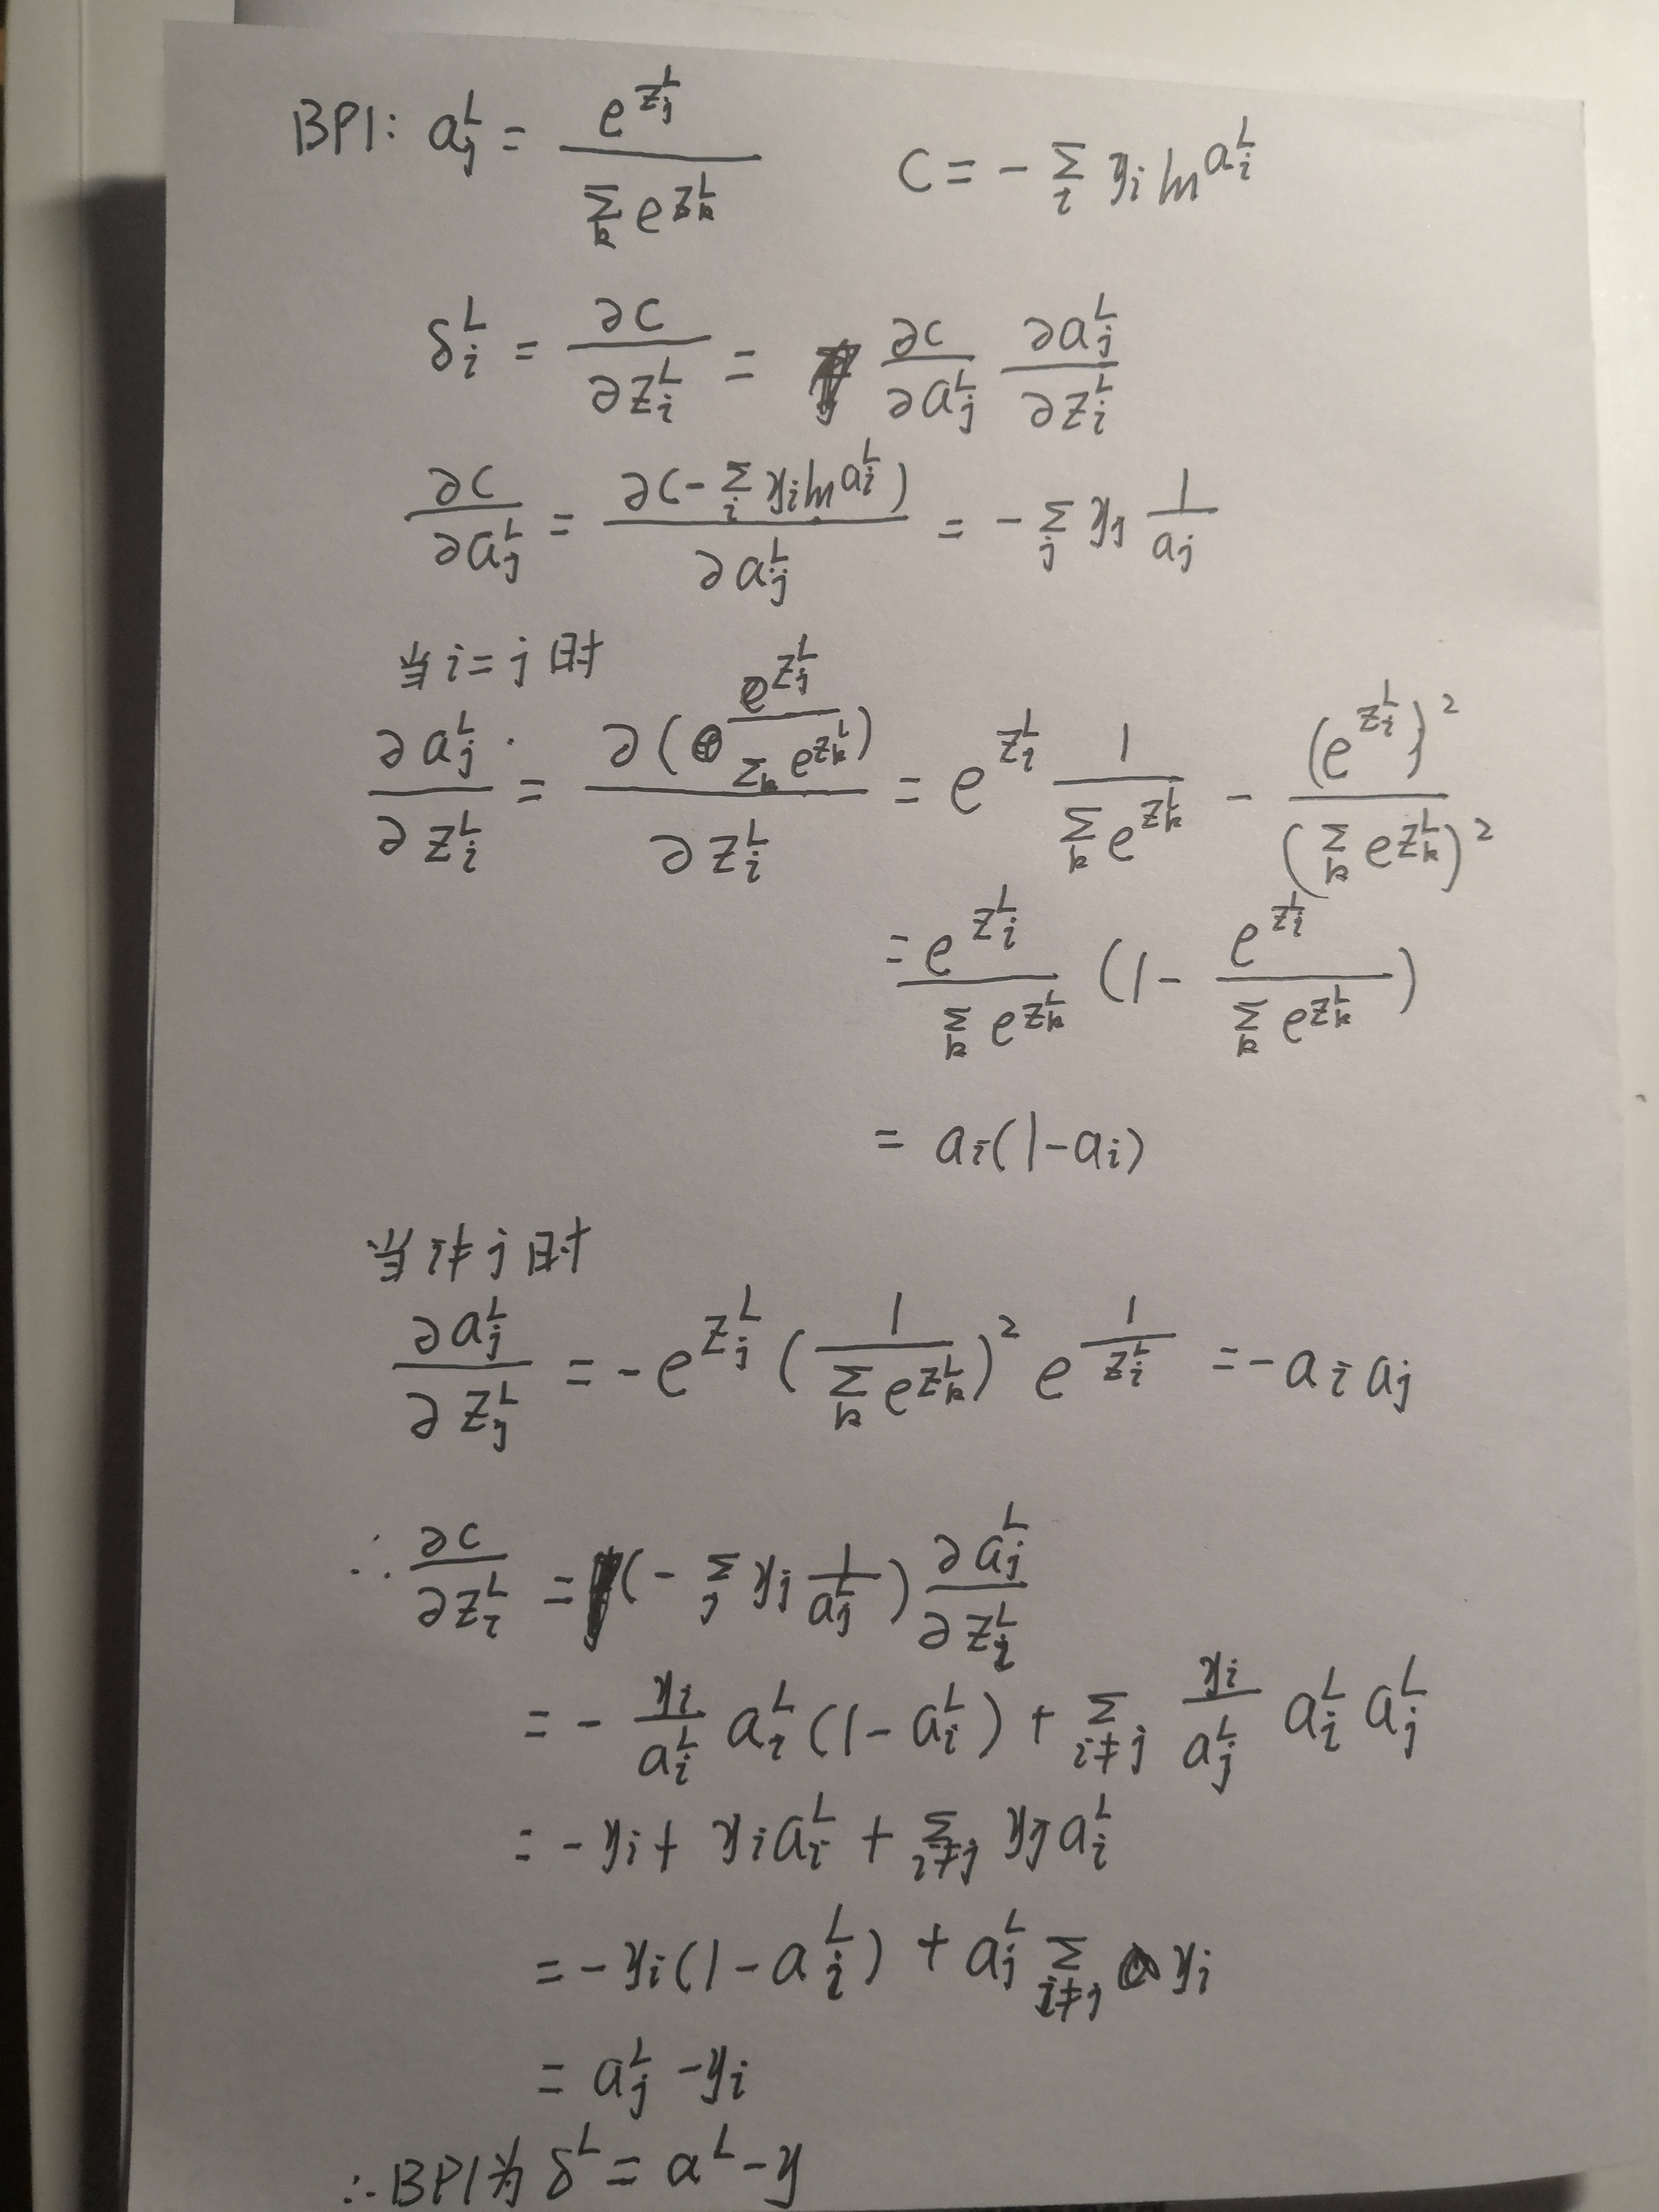 BP1: a_j^L = \frac{e^{z_j^L}}{\sum_k e^{z_k^L}}   C = - \sum_i y_i ln^{a_i^L}
δ_i^L = \frac{∂C}{∂z_i^L} = \frac{∂C}{∂a_j^L} \frac{∂a_j^L}{∂z_i^L}
\frac{∂C}{∂a_j^L} = \frac{∂(-\sum_i y_i ln^{a_i^L})}{∂a_j^L} = - \sum_j y_j \frac{1}{a_j}
当 i = j 时
\frac{∂a_j^L}{∂z_i^L} = \frac{∂(\frac{e^{z_j^L}}{\sum_k e^{z_k^L}})}{∂z_i^L} = e^{z_i^L} \frac{1}{\sum_k e^{z_k^L}} - \frac{(e^{z_i^L})^2}{(\sum_k e^{z_k^L})^2}
= \frac{e^{z_i^L}}{\sum_k e^{z_k^L}} (1 - \frac{e^{z_i^L}}{\sum_k e^{z_k^L}})
= a_i(1-a_i)
当 i ≠ j 时
\frac{∂a_j^L}{∂z_j^L} = - e^{z_j^L} (\frac{1}{\sum_k e^{z_k^L}})^2 e^{\frac{1}{z_i^L}} = - a_i a_j
∴ \frac{∂C}{∂z_i^L} = (- \sum_j y_j \frac{1}{a_j^L}) \frac{∂a_j^L}{∂z_i^L}
= - \frac{y_i}{a_i^L} a_i^L (1 - a_i^L) + \sum_{i≠j} \frac{y_i}{a_j^L} a_i^L a_j^L
= - y_i + y_i a_i^L + \sum_{i≠j} y_j a_i^L
= - y_i (1 - a_i^L) + a_j^L \sum_{i≠j} y_i
= a_j^L - y_i
∴ BP1为 δ^L = a^L - y